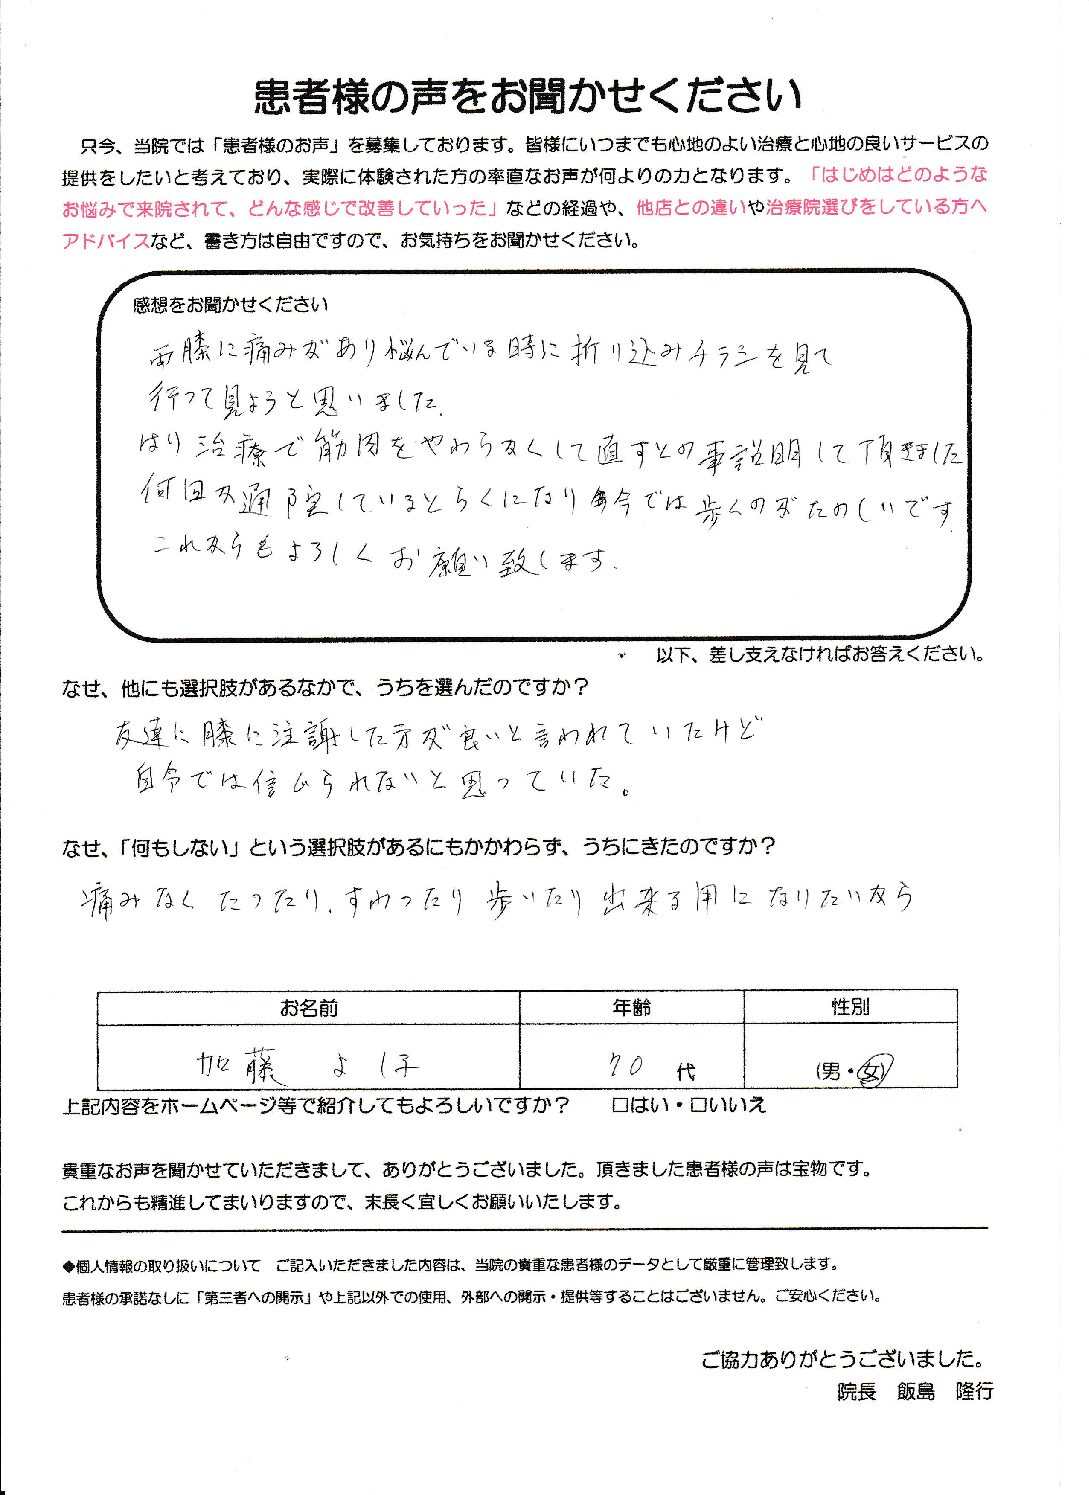 患者様の声をお聞かせください
只今、当院では「患者様のお声」を募集しております。皆様にいつまでも心地のよい治療と心地の良いサービスの
提供をしたいと考えており、実際に体験された方の率直なお声が何よりの力となります。「はじめはどのような
お悩みで来院されて、どんな感じで改善していった」などの経過や、他店との違いや治療院選びをしている方へ
アドバイスなど、書き方は自由ですので、お気持ちをお聞かせください。
感想をお聞かせください
両膝に痛みがあり悩んでいる時に折り込みチラシを見て
行って見ようと思いました.
はり治療で筋肉をやわらかくして直すとの事説明して頂きました
何回か通院しているとらくになり 今では歩くのがたのしいです
これからもよろしくお願い致します.
以下、差し支えなければお答えください。
なぜ、他にも選択肢があるなかで、うちを選んだのですか?
友達に膝に注謝した方が良いと言われていたけど
自分では信じられないと思っていた。
なぜ、「何もしない」という選択肢があるにもかかわらず、うちにきたのですか?
痛みなくたったり、すわったり歩いたり出来る用になりたいから
お名前 年齢 性別
加藤 よし子 70 代 (男・女)
上記内容をホームページ等で紹介してもよろしいですか? □はい・□いいえ
貴重なお声を聞かせていただきまして、ありがとうございました。頂きました患者様の声は宝物です。
これからも精進してまいりますので、末長く宜しくお願いいたします。
◆個人情報の取り扱いについて ご記入いただきました内容は、当院の貴重な患者様のデータとして厳重に管理致します。
患者様の承諾なしに「第三者への開示」や上記以外での使用、外部への開示・提供等することはございません。ご安心ください。
ご協力ありがとうございました。
院長 飯島 隆行